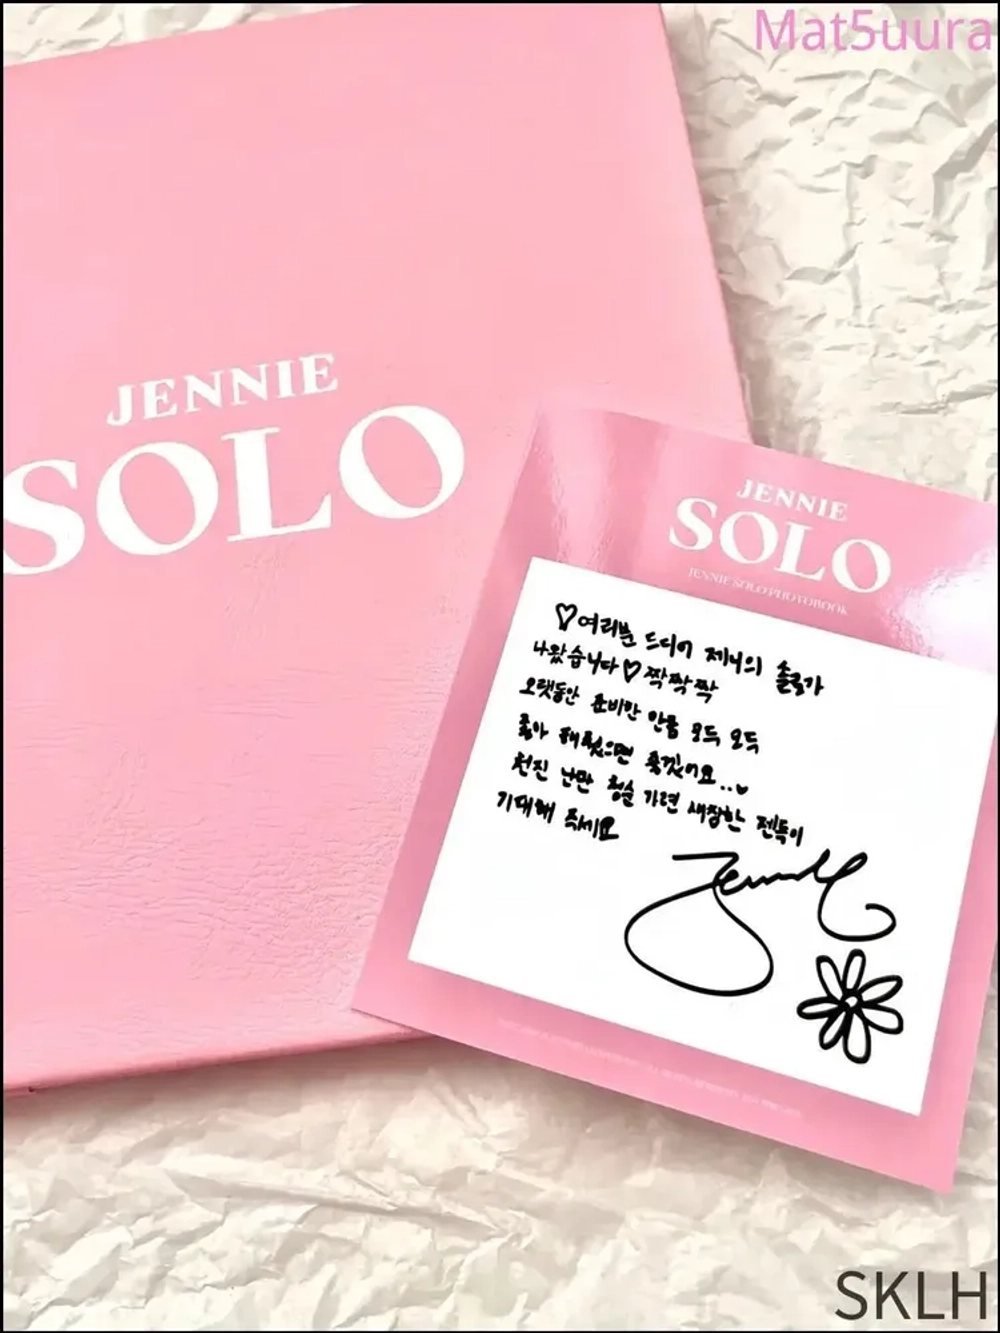 Mat5uura
JENNIE
SOLO
JENNIE
SOLO
JENNIE SOLO PHOTOBOOK
♡여러분 드디어 제니의 솔로가
나왔습니다♡짝짝짝
오랫동안 준비한 만큼 모두 모두
좋아 해줬으면 좋겠어요..
천진 난만 청순 가련 새침한 젠득이
기대해 주세요
Jennie
SKLH